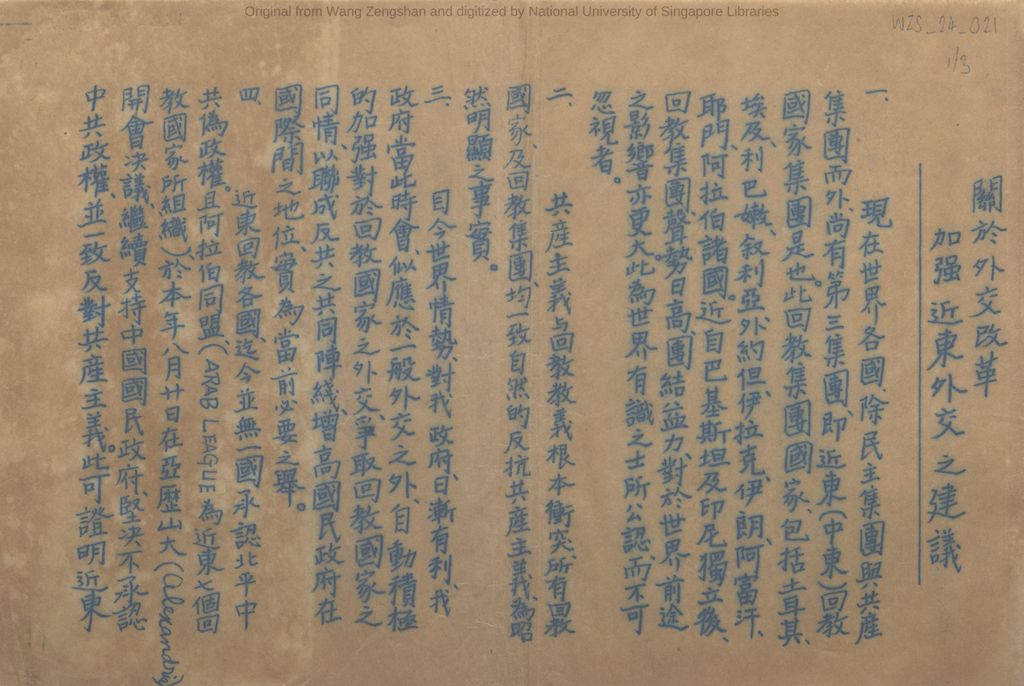 Original from Wang Zengshan and digitized by National University of Singapore Libraries
WZS_24_021
1/3
關於外交改革
加强近東外交之建議
一、現在世界各國、除民主集團與共產
集團而外、尚有第三集團、即近東（中東）回教
國家集團是也。此回教集團國家、包括土耳其、
埃及、利巴嫩、叙利亞、外約但、伊拉克、伊朗、阿富汗、
耶門、阿拉伯諸國。近自巴基斯坦及印尼獨立後、
回教集團、聲勢日高、團結益力、對於世界前途
之影響亦更大。此為世界有識之士所公認、而不可
忽視者。
二、共產主義与回教教義根本衝突、所有回教
國家、及回教集團、均一致自然的反抗共產主義、為昭
然明顯之事實。
三、目今世界情勢、對我政府、日漸有利、我
政府當此時會、似應於一般外交之外、自動積極
的加强對於回教國家之外交、爭取回教國家之
同情、以聯成反共之共同陣綫、增高國民政府在
國際間之地位、實為當前必要之舉。
四、近東回教各國、迄今並無一國承認北平中
共偽政權。且阿拉伯同盟、（ARAB LEAGUE 為近東七個回
教國家所組織）於本年八月廿日在亞歷山大（Alexandria）
開會決議、繼續支持中國國民政府、堅決不承認
中共政權、並一致反對共產主義。此可證明近東